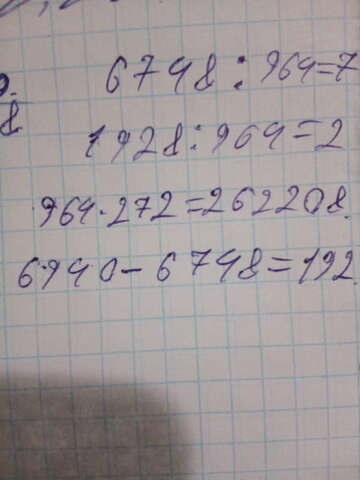 6748 : 964=7
8
1928 : 964=2
964·272=262208.
6940-6748=192.